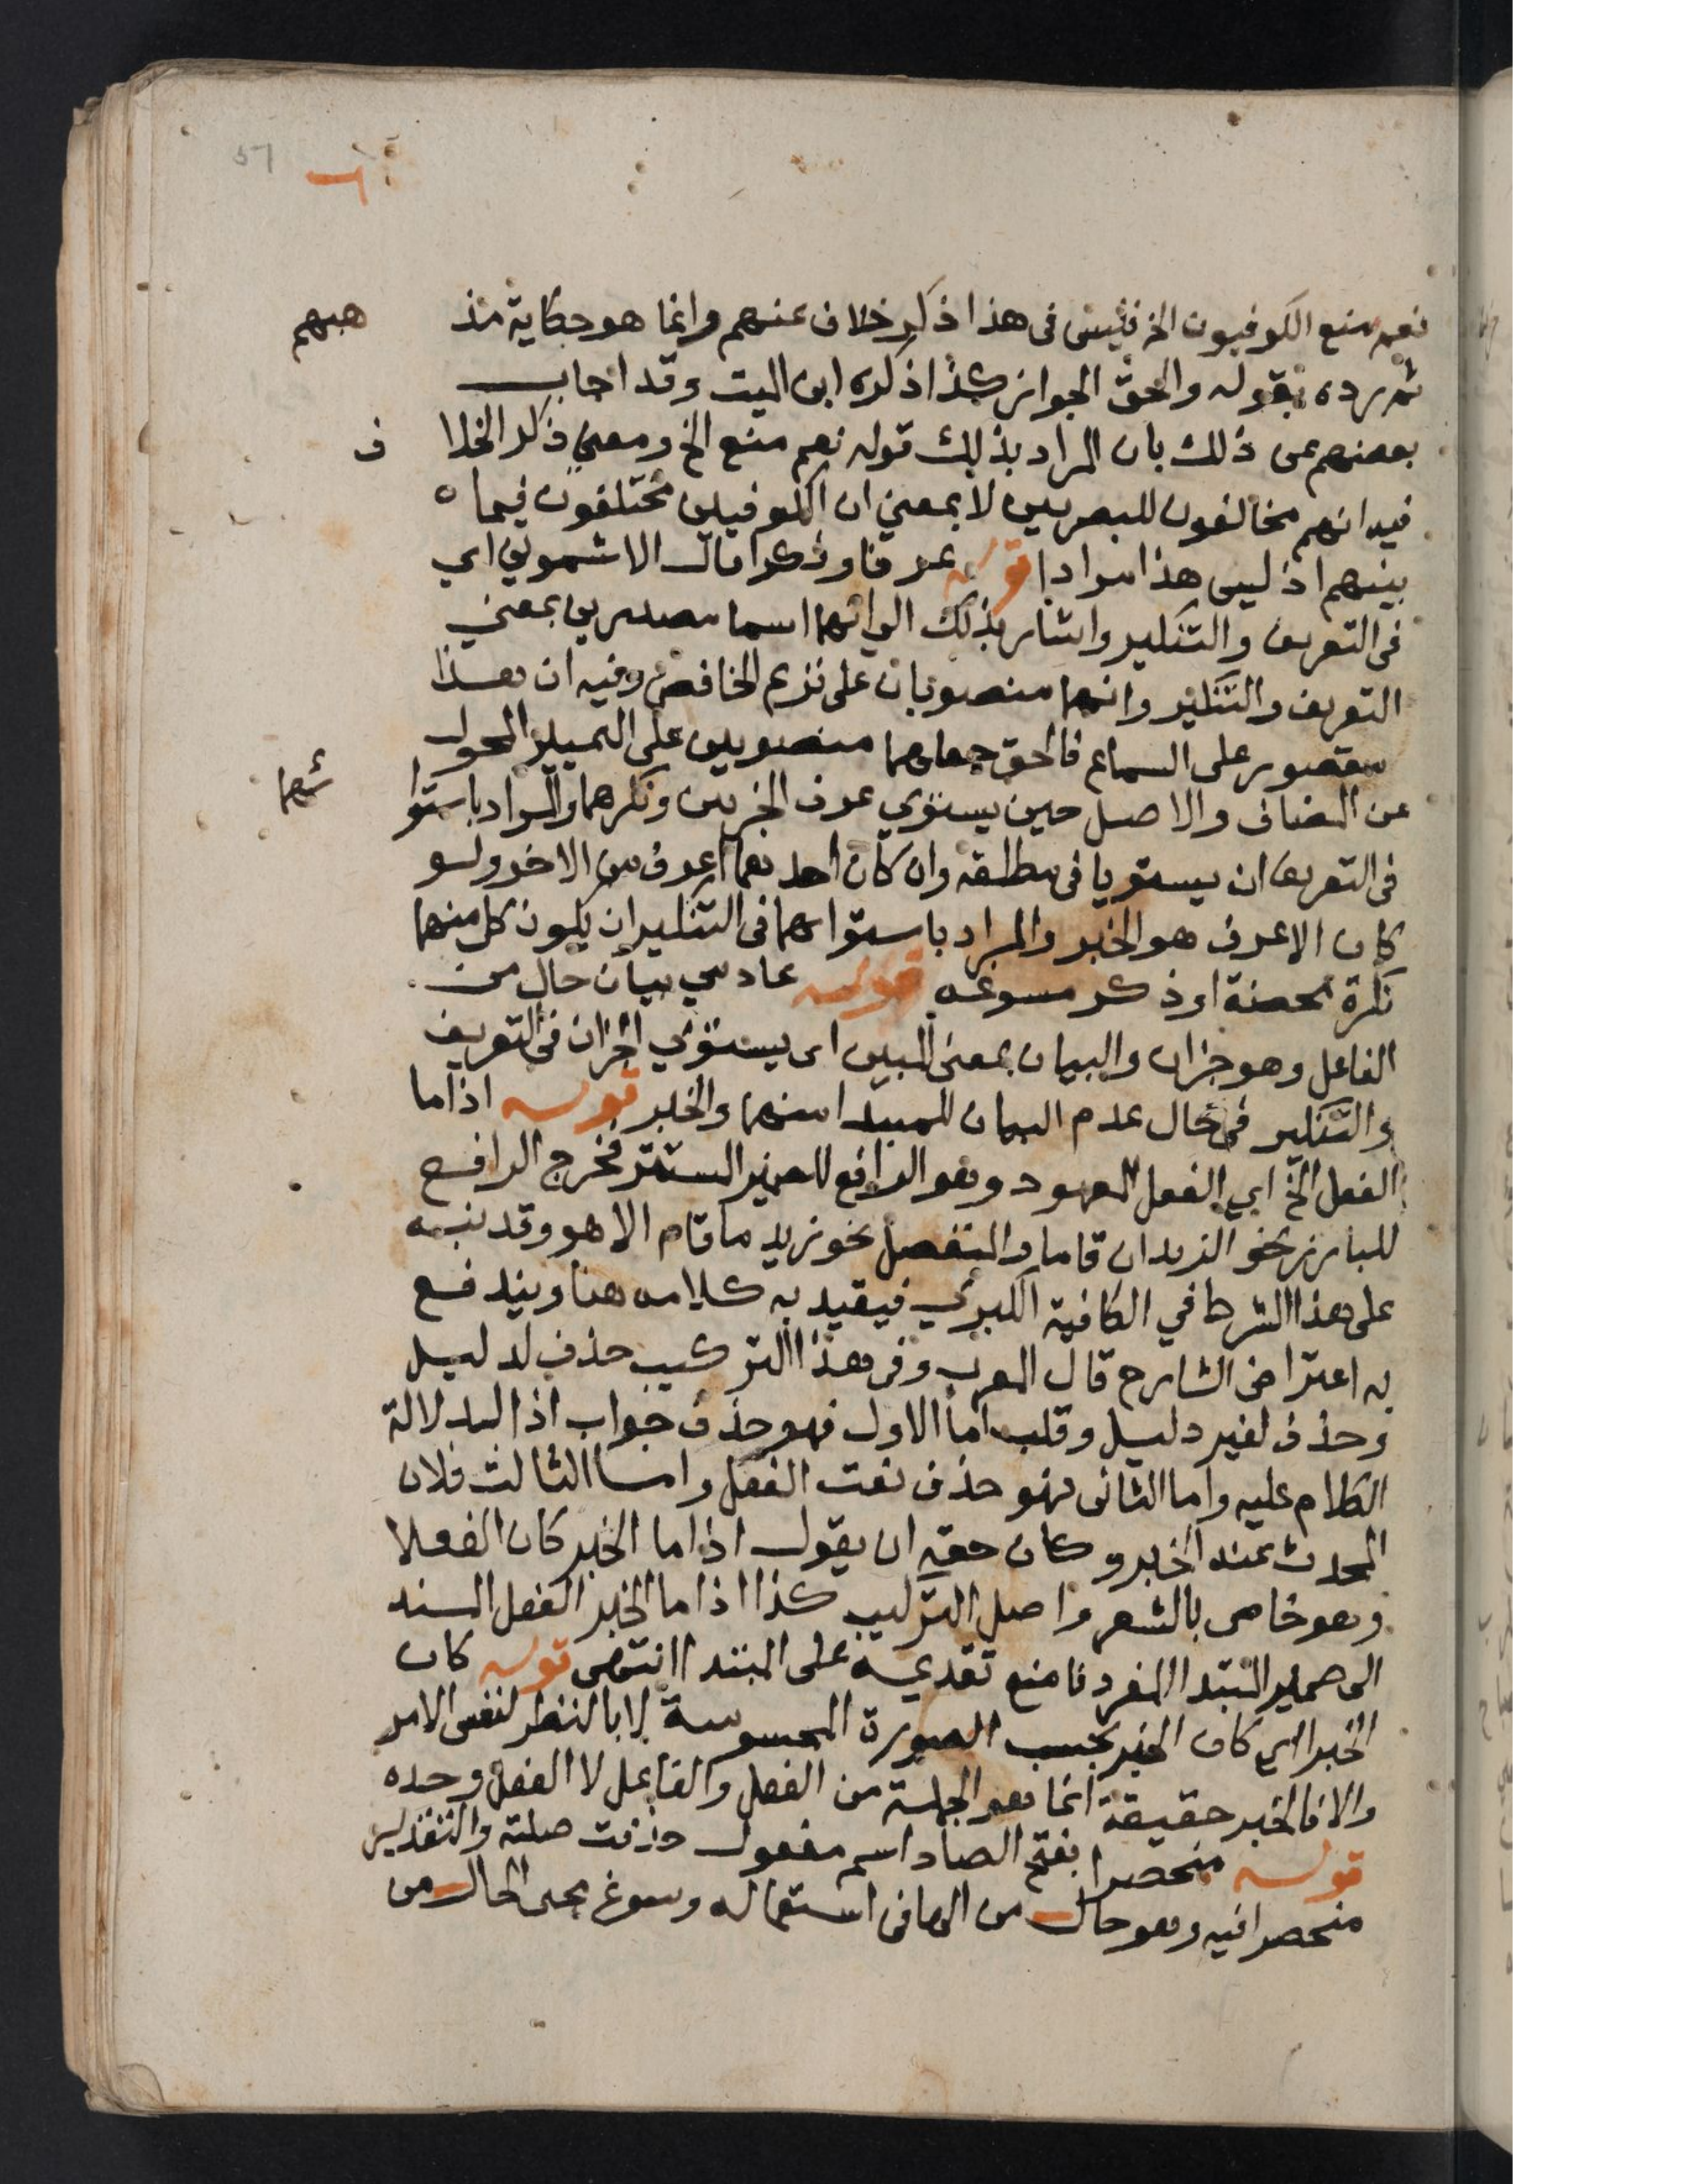 نعم منع الكوفيون الخ فليس فى هذا ذكر خلاف عنهم وانما هو حكاية مذ هبهم
ثم رده بقوله والحق الجواز كذا ذكره ابن الميت وقد اجاب
بعضهم عن ذلك بان المراد بذلك قوله نعم منع الخ ومعنى ذكر الخلا ف
فيه انهم مخالفون للبصريين لا بمعنى ان الكوفيين مختلفون فيما ه
بينهم اذ ليس هذا مرادا قوله عرفا ونكرا قال الاشموني اي
فى التعريف والتنكير واشار بذلك الى انهما اسما مصدرين بمعنى
التعريف والتنكير وانهما منصوبان على نزع الخافض وفيه ان هذا
مقصور على السماع فالحق جعلهما منصوبين على التمييز المحول
عن المضاف والاصل حين يستوي عرف الجزءين ونكرهما والمراد باستوا ئهما
فى التعريف ان يستويا فى مطلقه وان كان احدهما اعرف من الاخر ولو
كان الاعرف هو الخبر والمراد باستوائهما فى التنكير ان يكون كل منهما
نكرة محضة او ذكر مسوغه قوله عادمي بيان حال من
الفاعل وهو جزان والبيان بمعنى المبين اى يستوي الجزان فى التعريف
والتنكير فى حال عدم البيان للمبتدا منهما والخبر قوله اذا ما
الفعل الخ اي الفعل المعهود وهو الرافع للضمير المستتر فخرج الرافع
للبارز نحو الزيدان قاما والمنفصل نحو زيد ما قام الا هو وقد نبه
على هذا الشرط في الكافية الكبرى فيقيد به كلامه هنا ويندفع
به اعتراض الشارح قال المعرب وفى هذا التركيب حذف لدليل
وحذف لغير دليل وقلب اما الاول فهو حذف جواب اذا لدلالة
الكلام عليه واما الثانى فهو حذف نعت الفعل واما الثالث فلان
المحدث عنه الخبر وكان حقه ان يقول اذا ما الخبر كان الفعلا
وهو خاص بالشعر واصل التركيب كذا اذا ما الخبر الفعل المسند
الى ضمير المبتدا المفرد فامنع تقديمه على المبتدا انتهى قوله كان
الخبرا اي كان الخبر بحسب الصورة المحسوسة لا بالنظر لنفس الامر
والا فالخبر حقيقة انما هو الجملة من الفعل والفاعل لا الفعل وحده
قوله منحصرا بفتح الصاد اسم مفعول حذفت صلته والتقدير
منحصرا فيه وهو حال من المضاف استعماله وسوغ مجى الحال من